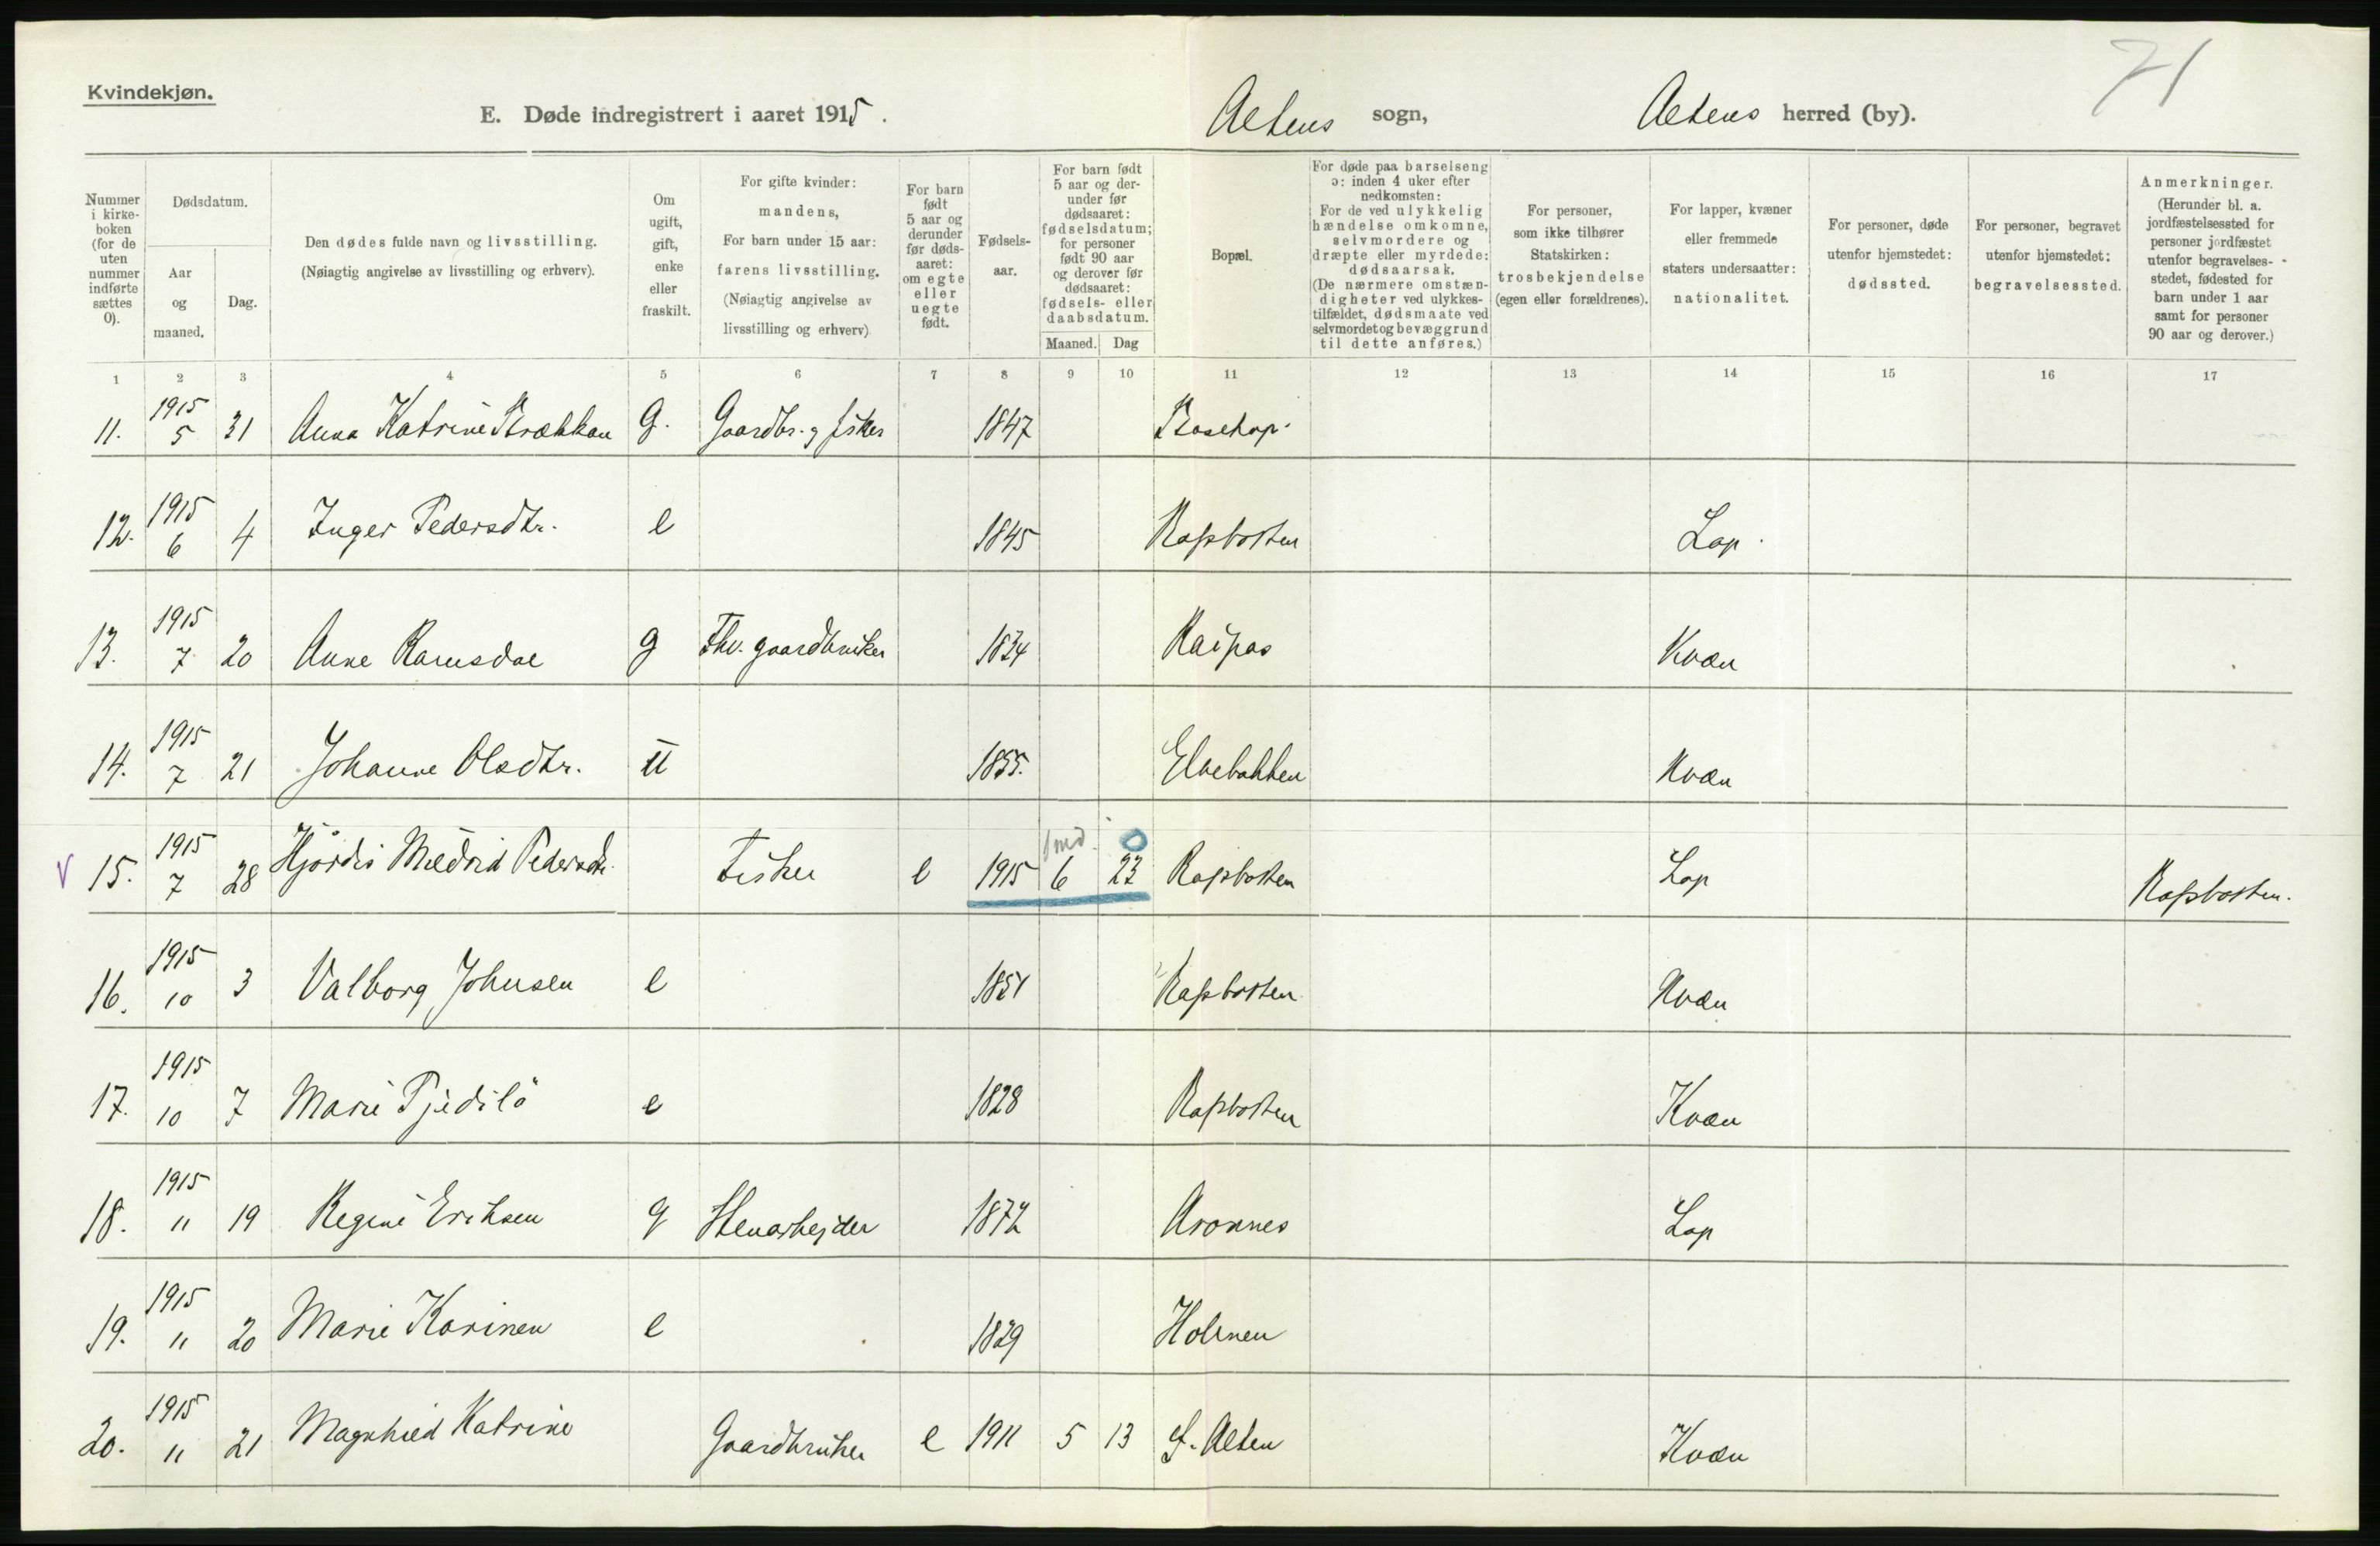 71
Kvindekjøn.
E. Døde indregistrert i aaret 1915.
Altens sogn, Altens herred (by).
Nummer i kirkeboken (for de uten nummer indførte sættes 0).
Dødsdatum.
Aar og maaned.
Dag.
Den dødes fulde navn og livsstilling.
(Nøiagtig angivelse av livsstilling og erhverv).
Om ugift, gift, enke eller fraskilt.
For gifte kvinder: mandens,
For barn under 15 aar: farens livsstilling.
(Nøiagtig angivelse av livsstilling og erhverv)
For barn født 5 aar og derunder før dødsaaret: om egte eller uegte født.
Fødselsaar.
For barn født 5 aar og derunder før dødsaaret: fødselsdatum; for personer født 90 aar og derover før dødsaaret: fødsels- eller daabsdatum.
Maaned. Dag
Bopæl.
For døde paa barselseng ɔ: inden 4 uker efter nedkomsten:
For de ved ulykkelig hændelse omkomne, selvmordere og dræpte eller myrdede: dødsaarsak.
(De nærmere omstændigheter ved ulykkestilfældet, dødsmaate ved selvmordet og bevæggrund til dette anføres.)
For personer, som ikke tilhører Statskirken: trosbekjendelse (egen eller forældrenes).
For lapper, kvæner eller fremmede staters undersaatter: nationalitet.
For personer, døde utenfor hjemstedet: dødssted.
For personer, begravet utenfor hjemstedet: begravelsessted.
Anmerkninger.
(Herunder bl. a. jordfæstelsessted for personer jordfæstet utenfor begravelsesstedet, fødested for barn under 1 aar samt for personer 90 aar og derover.)
1 2 3 4 5 6 7 8 9 10 11 12 13 14 15 16 17
11. 1915 5 31 Anna Katrine G. Gaardbr. og fisker 1847 Bosekop.
12. 1915 6 4 Inger Pedersdtr. e 1845 Rafsbotten Lap.
13. 1915 7 20 Anne Ramsdal g Fhv. gaardbruker 1834 Kaipas Kvæn
14. 1915 7 21 Johanne Olsdtr. u 1855. Elvebakken Kvæn
V 15. 1915 7 28 Hjørdis Mildrid Pedersdtr. Fisker e 1915 6 23 1 md. 0 Rafsbotten Lap Rafsbotten.
16. 1915 10 3 Valborg Johnsen e 1851 Rafsbotten Kvæn
17. 1915 10 7 Marie e 1828 Rafsbotten Kvæn
18. 1915 11 19 Regine Eriksen g Stenarbejder 1872 Aronnes Lap
19. 1915 11 20 Marie Karinen e 1829 Holmen
20. 1915 11 21 Magnhild Katrine Gaardbruker e 1911 5 13 Alten Kvæn